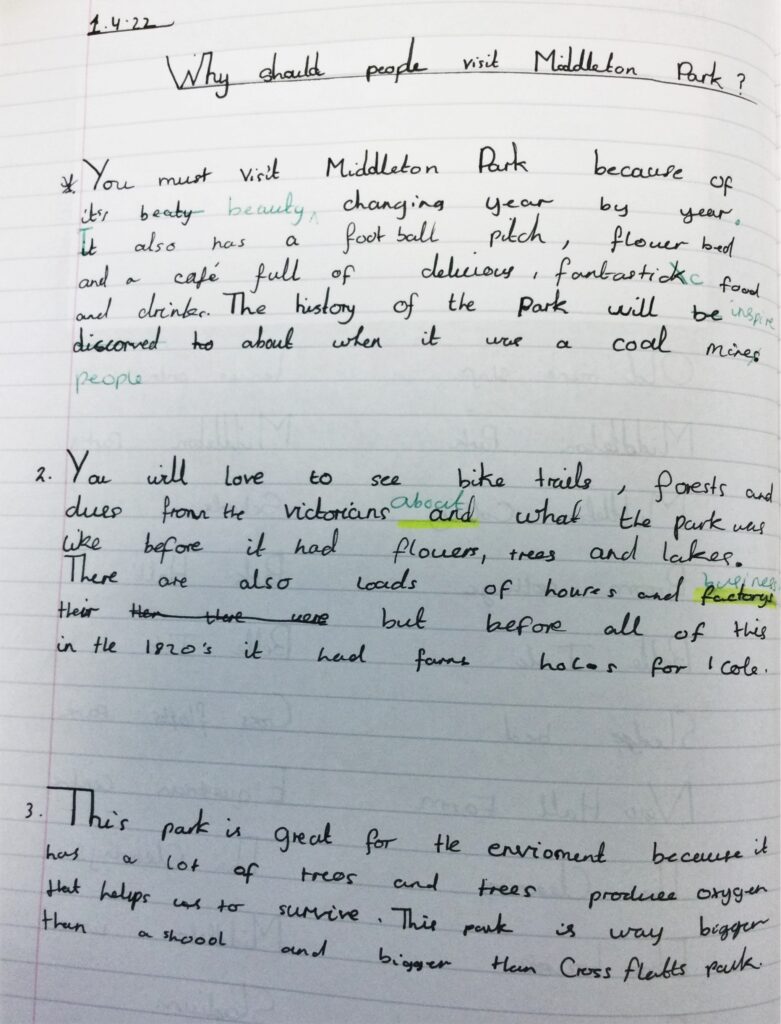 1.4.22
Why should people visit Middleton Park?
* You must visit Middleton Park because of
its beaty beauty, changing year by year.
It also has a foot ball pitch, flower bed
and a café full of delicious, fantastickc food
and drinks. The history of the park will be inspire
discorved to about when it was a coal mines
people
2. You will love to see bike trails, forests and
clues from the victorians about and what the park was
like before it had flowers, trees and lakes.
There are also loads of houses and business factorys
their Her there were but before all of this
in the 1820's it had farms holes for cole.
3. This park is great for the envioment because it
has a lot of trees and trees produce oxygen
that helps us to survive. This park is way bigger
than a shcool and bigger than Cross flatts park.